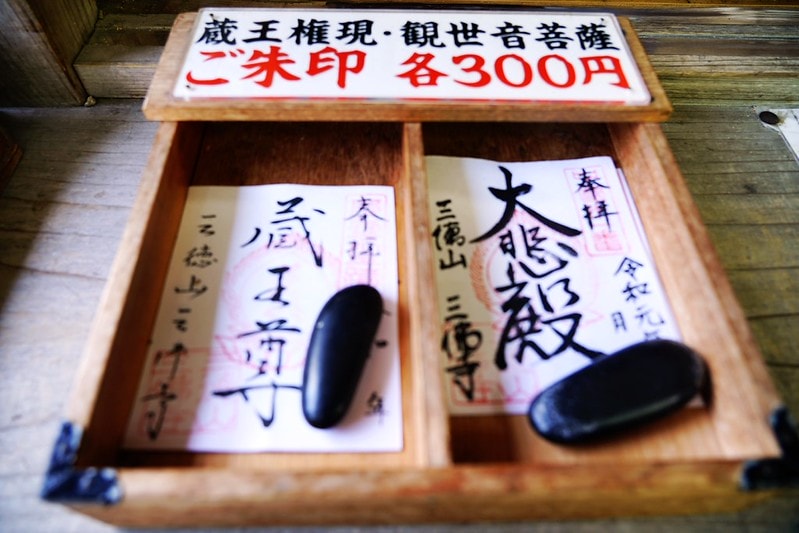 蔵王権現・観世音菩薩
ご朱印 各300円
奉拝
年
蔵王尊
三徳山三佛寺
令和元年
月
奉拝
大悲殿
三徳山 三佛寺